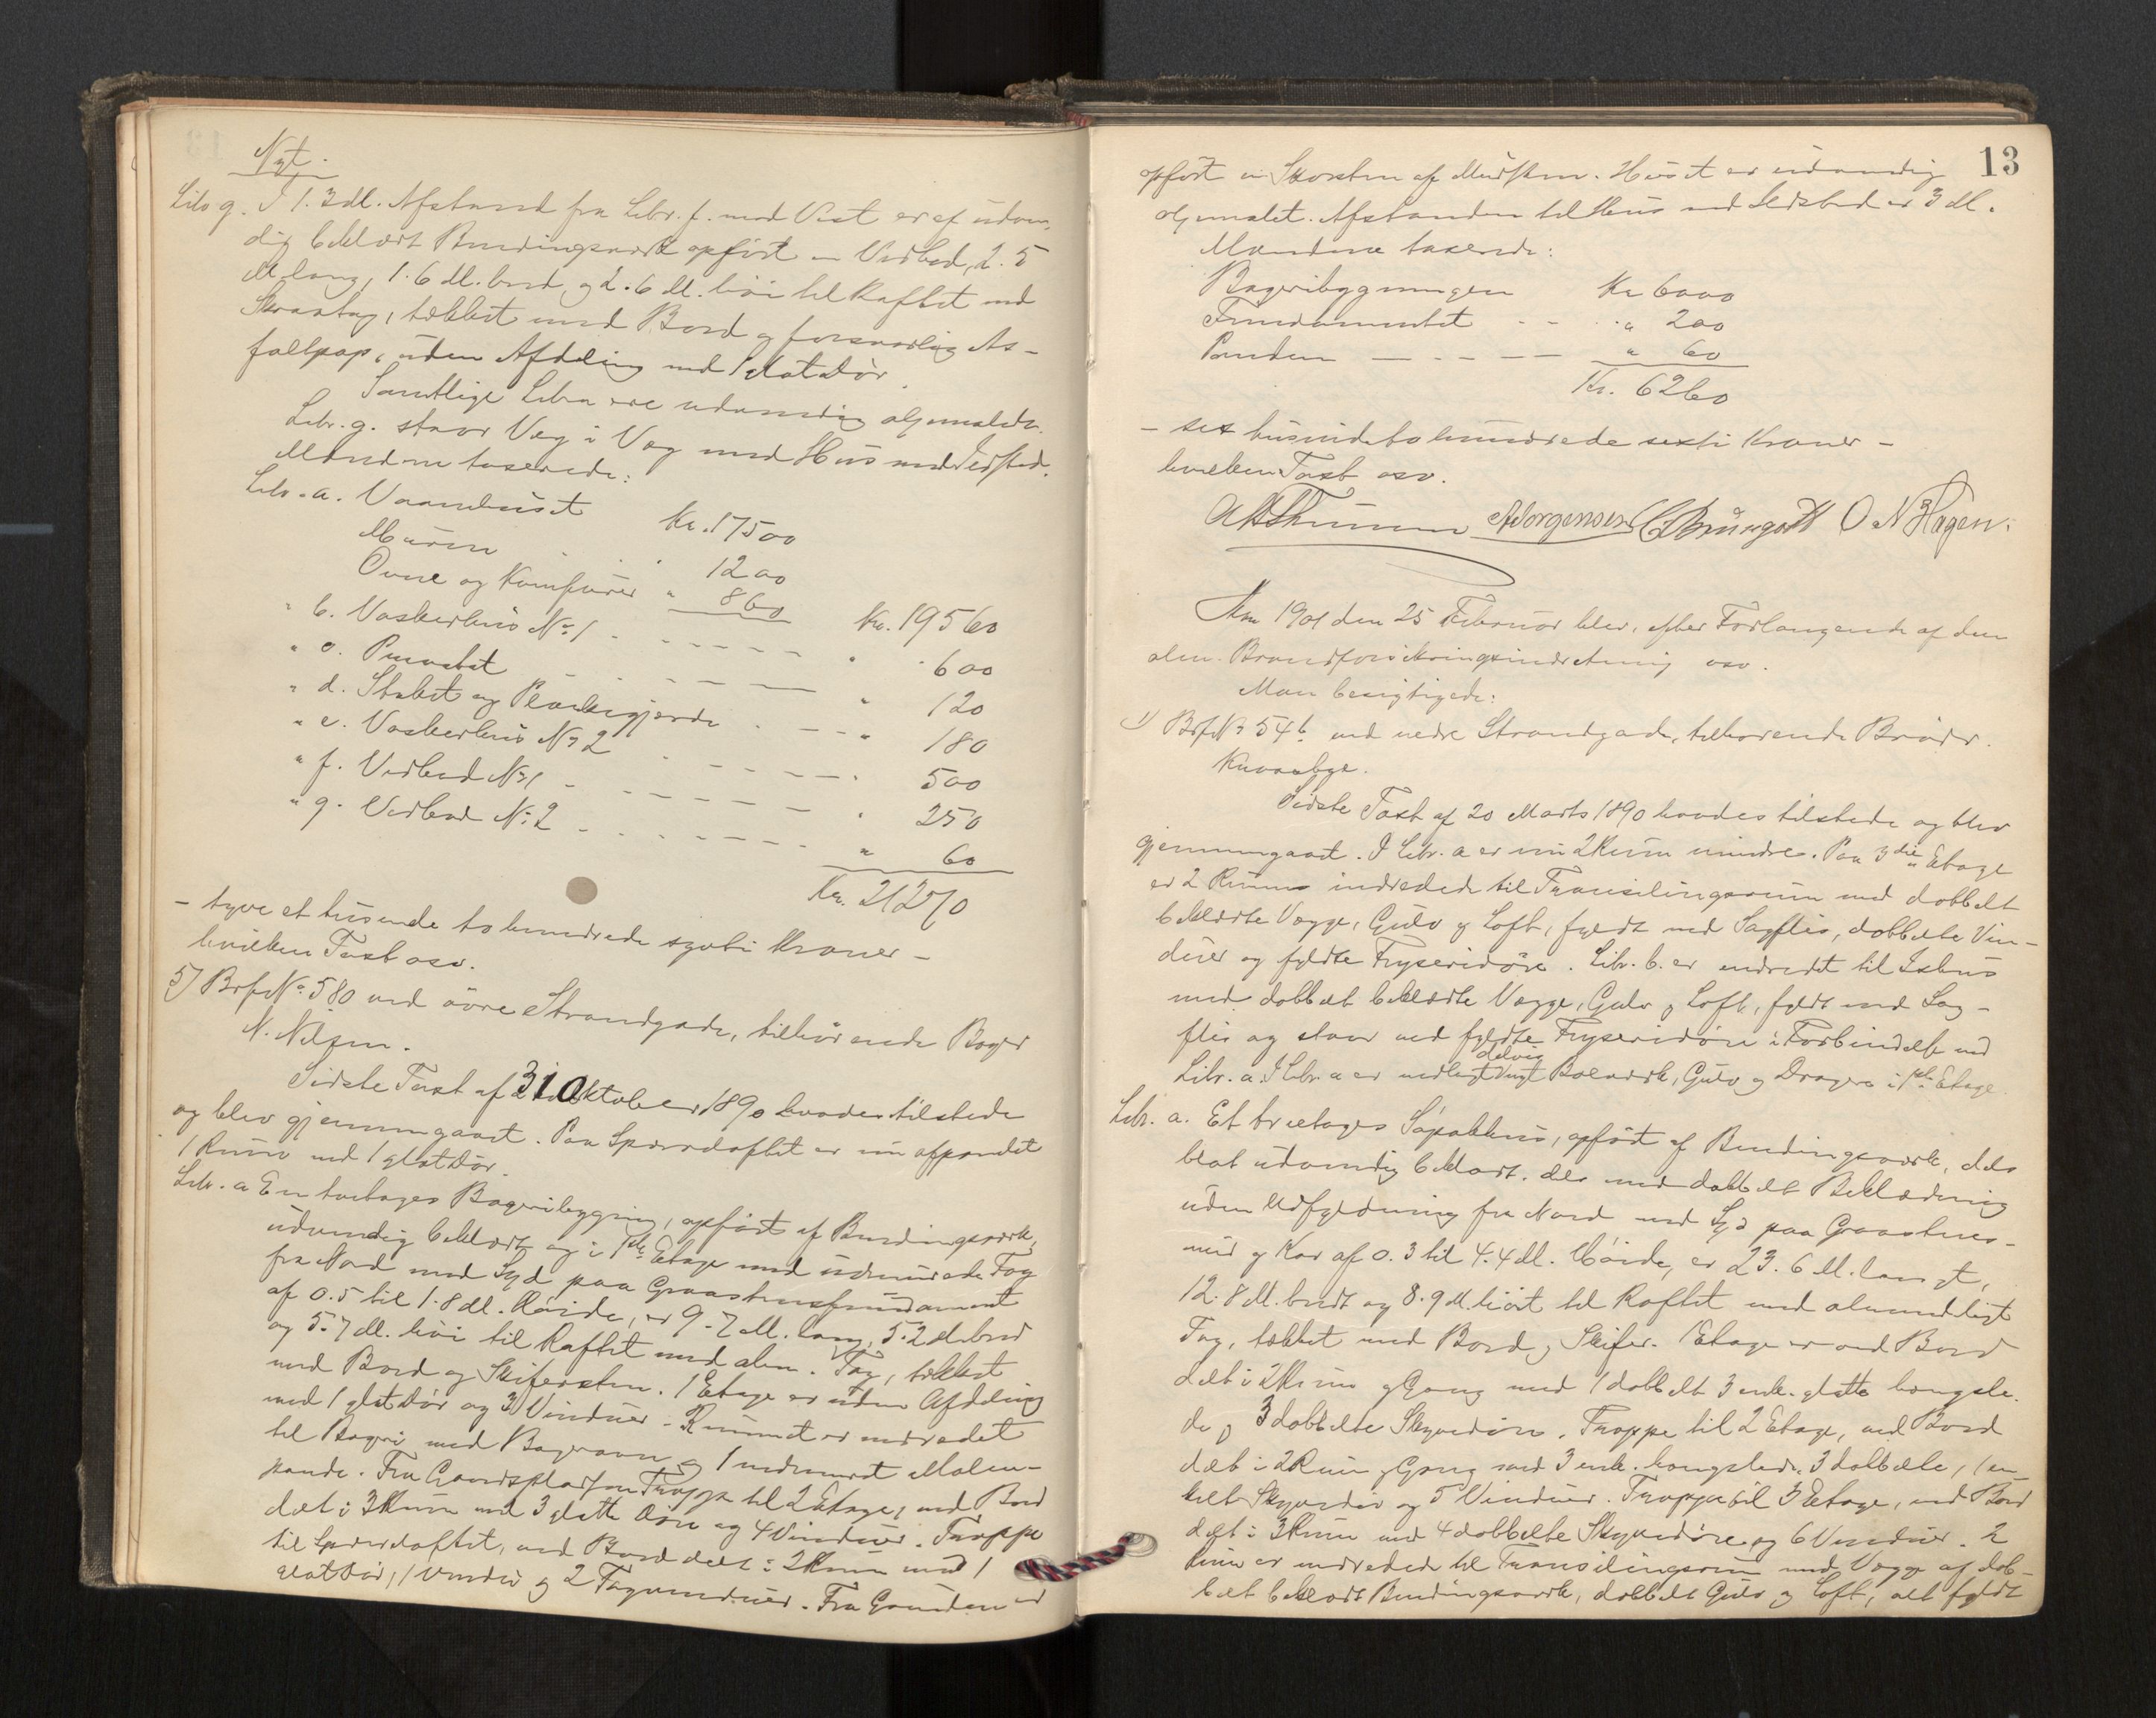 Nyt.
Litr g. I 1.3 M. Afstand fra Litr. f. mod Vest er af udven-
dig beklædt Bindingsværk opført en Vedbod, 2.5
M. lang, 1.6 M. bred og 2.6 M. høi til Raftet med
Skraatag, tækket med Bord og forsvarlig As-
faltpap, uden Afdeling med 1 glat Dør.
Samtlige Litra ere udvendig oljemalede.
Litr. g. staar Væg i Væg med Hus med Ildsted.
Mændene taxerede:
Litr. a. Vaanehuset Kr. 17500
Muren " 1200
Ovne og Komfurer " 860 Kr. 19560
" b. Vaskerhus No 1 - - - " 600
" c. " 120
" d. Stakit og Plankegjerde - - - " 180
" e. Vaskerhus No 2 - - - " 500
" f. Vedbod No 1 - - - " 250
" g. Vedbod No. 2 - - - " 60
Kr. 21270
- tyve et tusende to hundrede sytti Kroner -
hvilken Taxt osv.
5) Brf No. 580 ved øvre Strandgade, tilhørende Bager
N. Nilsen.
Sidste Taxt af 31 Oktober 1890 havdes tilstede
og blev gjennemgaaet. Paa Sparreloftet er nu afpanelet
1 Rum med 1 glat Dør.
Litr. a En toetages Bageribygning, opført af Bindingsværk,
udvendig beklædt og i 1ste Etage med udmurede Fag
fra Nord mod Syd paa Graastensfundament
af 0.5 til 1.8 M. Høide, er 9.7 M. lang, 5.2 M. bred
og 5.7 M. høi til Raftet med alm. Tag, tækket
med Bord og Skifersten. 1 Etage er uden Afdeling
med 1 glat Dør og 3 Vinduer. Rummet er indredet
til Bageri med Bagerovn og 1 indmuret Malen-
pande. Fra Gaardspladsen Trappe til 2 Etage, ved Bord
delt i 3 Rum med 3 glatte Døre og 4 Vinduer. Trappe
til Sparreloftet, ved Bord delt i 2 Rum med 1
glat Dør, 1 Vindu og 2 Tagvinduer. Fra Grunden er
13
opført en Skorsten af Mursten. Huset er udvendig
oljemalet. Afstanden til Hus med Ildsted er 3 M.
Mændene taxerede:
Bageribygningen Kr 6000
Fundamentet - - " 200
Panden - - - - " 60
Kr. 6260
- sex tusinde to hundrede sexti Kroner -
hvilken Taxt osv.
A Jørgensen O N Hagen.
Aar 1901 den 25 Februar blev, efter Forlangende af den
alm. Brandforsikringsindretning osv.
Man besigtigede:
1) Brf No 54b ved nedre Strandgade, tilhørende Brødr.
Sidste Taxt af 20 Marts 1890 havdes tilstede og blev
gjennemgaaet. I Litr. a er nu 2 Rum mindre. Paa 3die Etage
er 2 Rum indredede til med dobbelt
beklædte Vægge, Gulv og Loft, fyldt med Sagflis, dobbelte Vin-
duer og fyldte Fryseridøre. Litr. b. er indredet til Ishus
med dobbelt beklædte Vægge, Gulv og Loft, fyldt med Sag-
flis og staar ved fyldte Fryseridøre i Forbindelse med
Litr. a. I Litr. a er nedlagt delvis nyt Bolværk, Gulv og Dragere i 1ste Etage.
Litr. a. Et treetages Søpakhus, opført af Bindingsværk, dels
blot udvendig beklædt, dels med dobbelt Beklædning
uden Udfyldning fra Nord mod Syd paa Graastens-
mur og Kar af 0.3 til 4.4 M. Høide, er 23.6 M. langt,
12.8 M. bredt og 8.9 M. høit til Raftet med almindeligt
Tag, tækket med Bord og Skifer. 1 Etage er ved Bord
delt i 2 Rum og Gang med 1 dobbelt 3 enk. glatte hængsle-
de og 3 dobbelte Skyvedøre. Trappe til 2 Etage, ved Bord
delt i 2 Rum og Gang med 3 enk. hængslede, 3 dobbelte, 1 en-
kelt Skyvedør og 5 Vinduer. Trappe til 3 Etage, ved Bord
delt i 3 Rum med 4 dobbelte Skyvedøre og 6 Vinduer. 2
Rum er indredede til med Vægge af dob-
belt beklædt Bindingsværk, dobbelt Gulv og Loft, alt fyldt